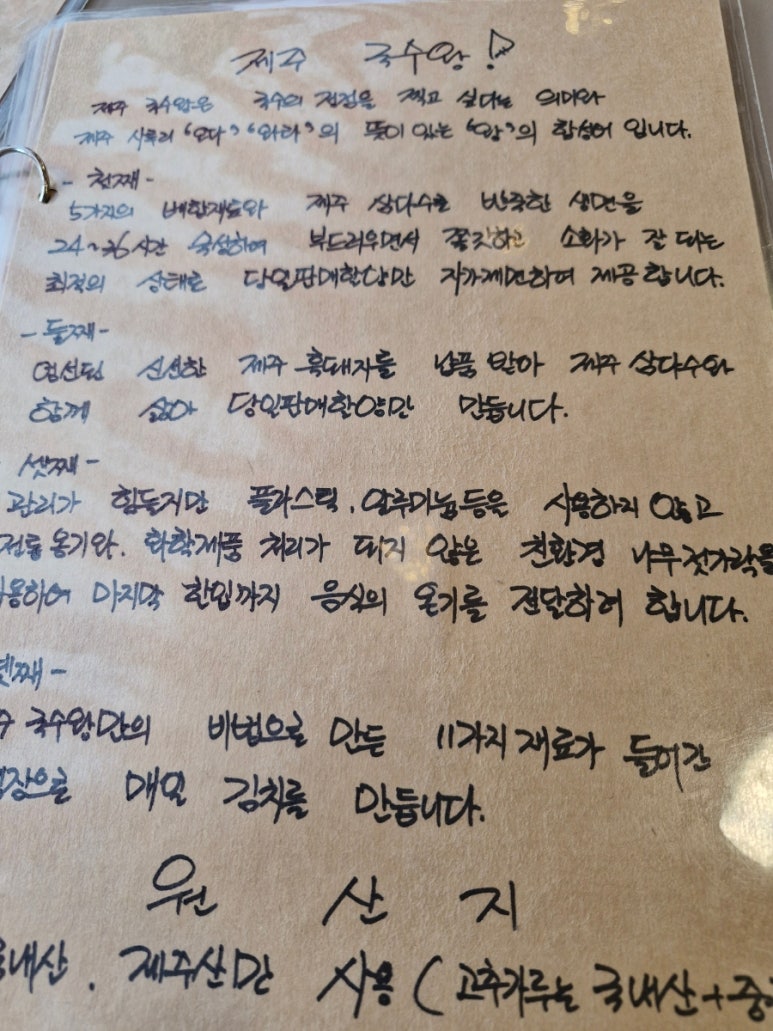 제주 국수왕!
제주 국수왕은 국수의 정점을 찍고 싶다는 의미와
제주 사투리 "오다" "와라"의 뜻이 있는 "왕"의 합성어 입니다.
- 첫째 -
5가지의 배합재료와 제주 삼다수로 반죽한 생면을
24~36시간 숙성하여 부드러우면서 쫄깃하고 소화가 잘 되는
최적의 상태로 당일판매할양만 자가제면하여 제공합니다.
- 둘째 -
엄선된 신선한 제주 흑돼지를 납품 받아 제주 삼다수와
함께 삶아 당일판매할양만 만듭니다.
- 셋째 -
관리가 힘들지만 플라스틱, 알루미늄등을 사용하지 않고
옹기와, 화학제품 처리가 되지 않은 친환경 나무젓가락을
사용하여 마지막 한입까지 음식의 온기를 전달하려 합니다.
넷째 -
국수왕만의 비법으로 만든 11가지 재료가 들어간
매일 김치를 만듭니다.
원 산 지
국내산, 제주산만 사용 (고추가루는 국내산+중